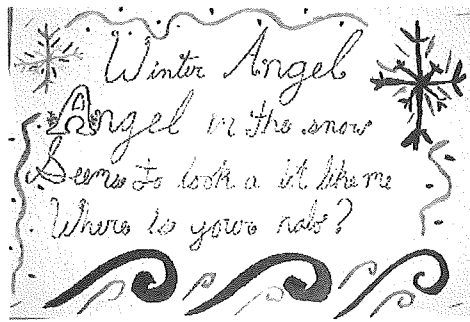 Winter Angel
Angel in the snow
Seems to look a bit like me
Where is your halo?